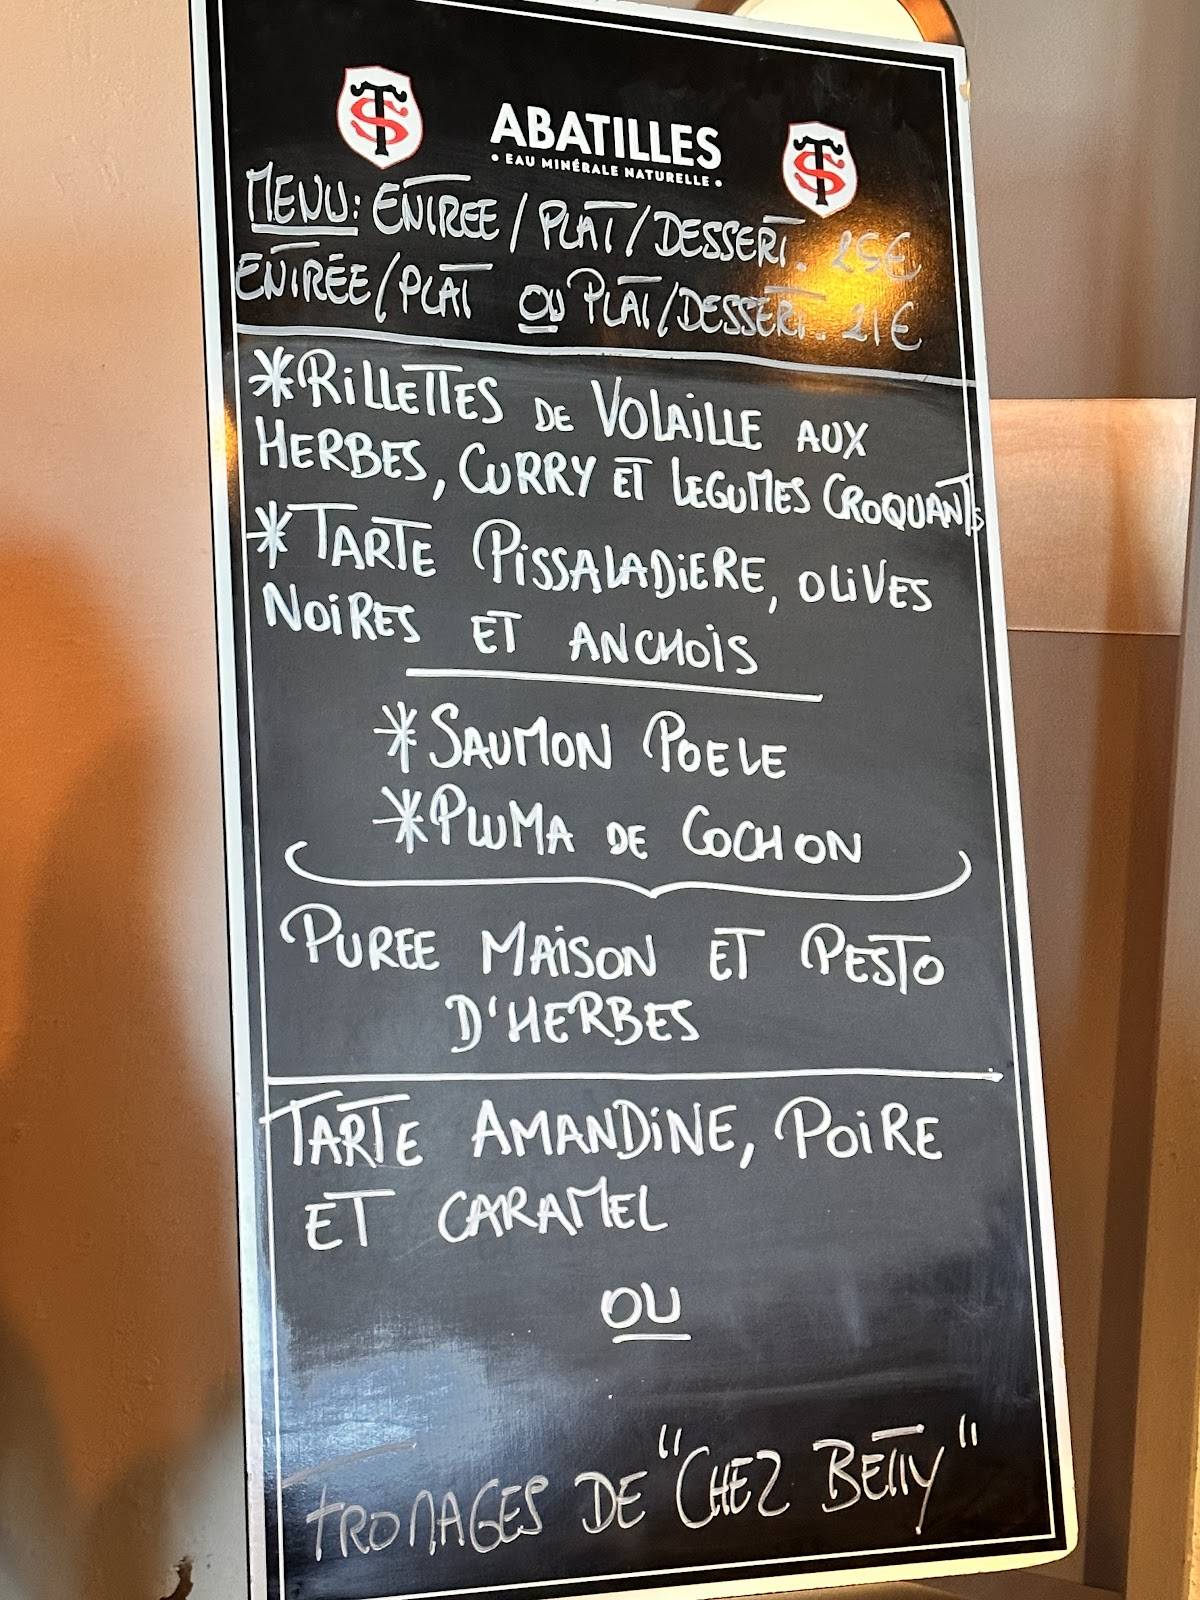 ABATILLES
• EAU MINÉRALE NATURELLE •
MENU: ENTREE / PLAT / DESSERT. 25€
ENTRÉE/PLAT OU PLAT/DESSERT. 21€
*RILLETTES DE VOLAILLE AUX
HERBES, CURRY ET LEGUMES CROQUANTS
*TARTE PISSALADIERE, OLIVES
NOIRES ET ANCHOIS
*SAUMON POELE
*PLUMA DE COCHON
PUREE MAISON ET PESTO
D'HERBES
TARTE AMANDINE, POIRE
ET CARAMEL
OU
FROMAGES DE "CHEZ BETTY"